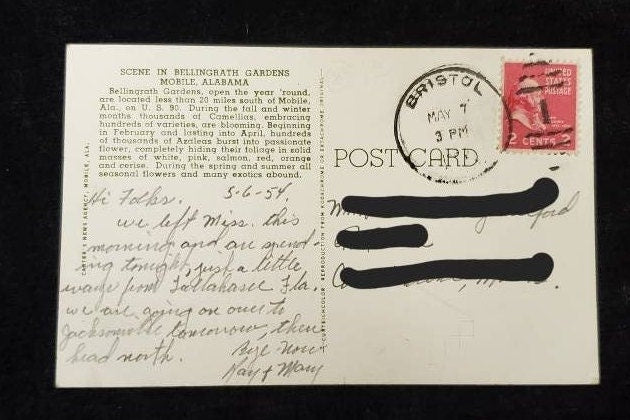 SCENE IN BELLINGRATH GARDENS
MOBILE, ALABAMA
Bellingrath Gardens, open the year 'round,
are located less than 20 miles south of Mobile,
Ala., on U. S. 90. During the fall and winter
months thousands of Camellias, embracing
hundreds of varieties, are blooming. Beginning
in February and lasting into April, hundreds
of thousands of Azaleas burst into passionate
flower, completely hiding their foliage in solid
masses of white, pink, salmon, red, orange
and cerise. During the spring and summer all
seasonal flowers and many exotics abound.
Hi Folks. 5-6-54.
we left Miss. this
morning and are spend-
ing tonight, just a little
ways from Tallahasee Fla.
we are going on over to
Jacksonville tomorrow, then
head north.
Bye Now
Ray + Mary
NEWS AGENCY, MOBILE, ALA.
POST CARD
BRISTOL
MAY 7
3 PM
UNITED
STATES
POSTAGE
2 CENTS